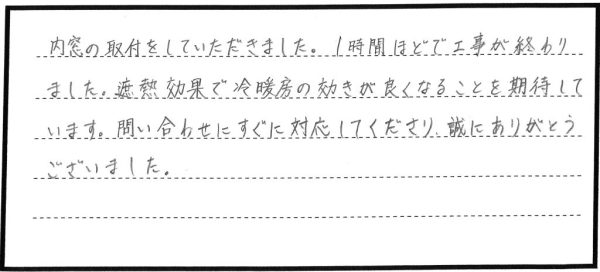 内窓の取付をしていただきました。1時間ほどで工事が終わり
ました。遮熱効果で冷暖房の効きが良くなることを期待して
います。問い合わせにすぐに対応してくださり、誠にありがとう
ございました。